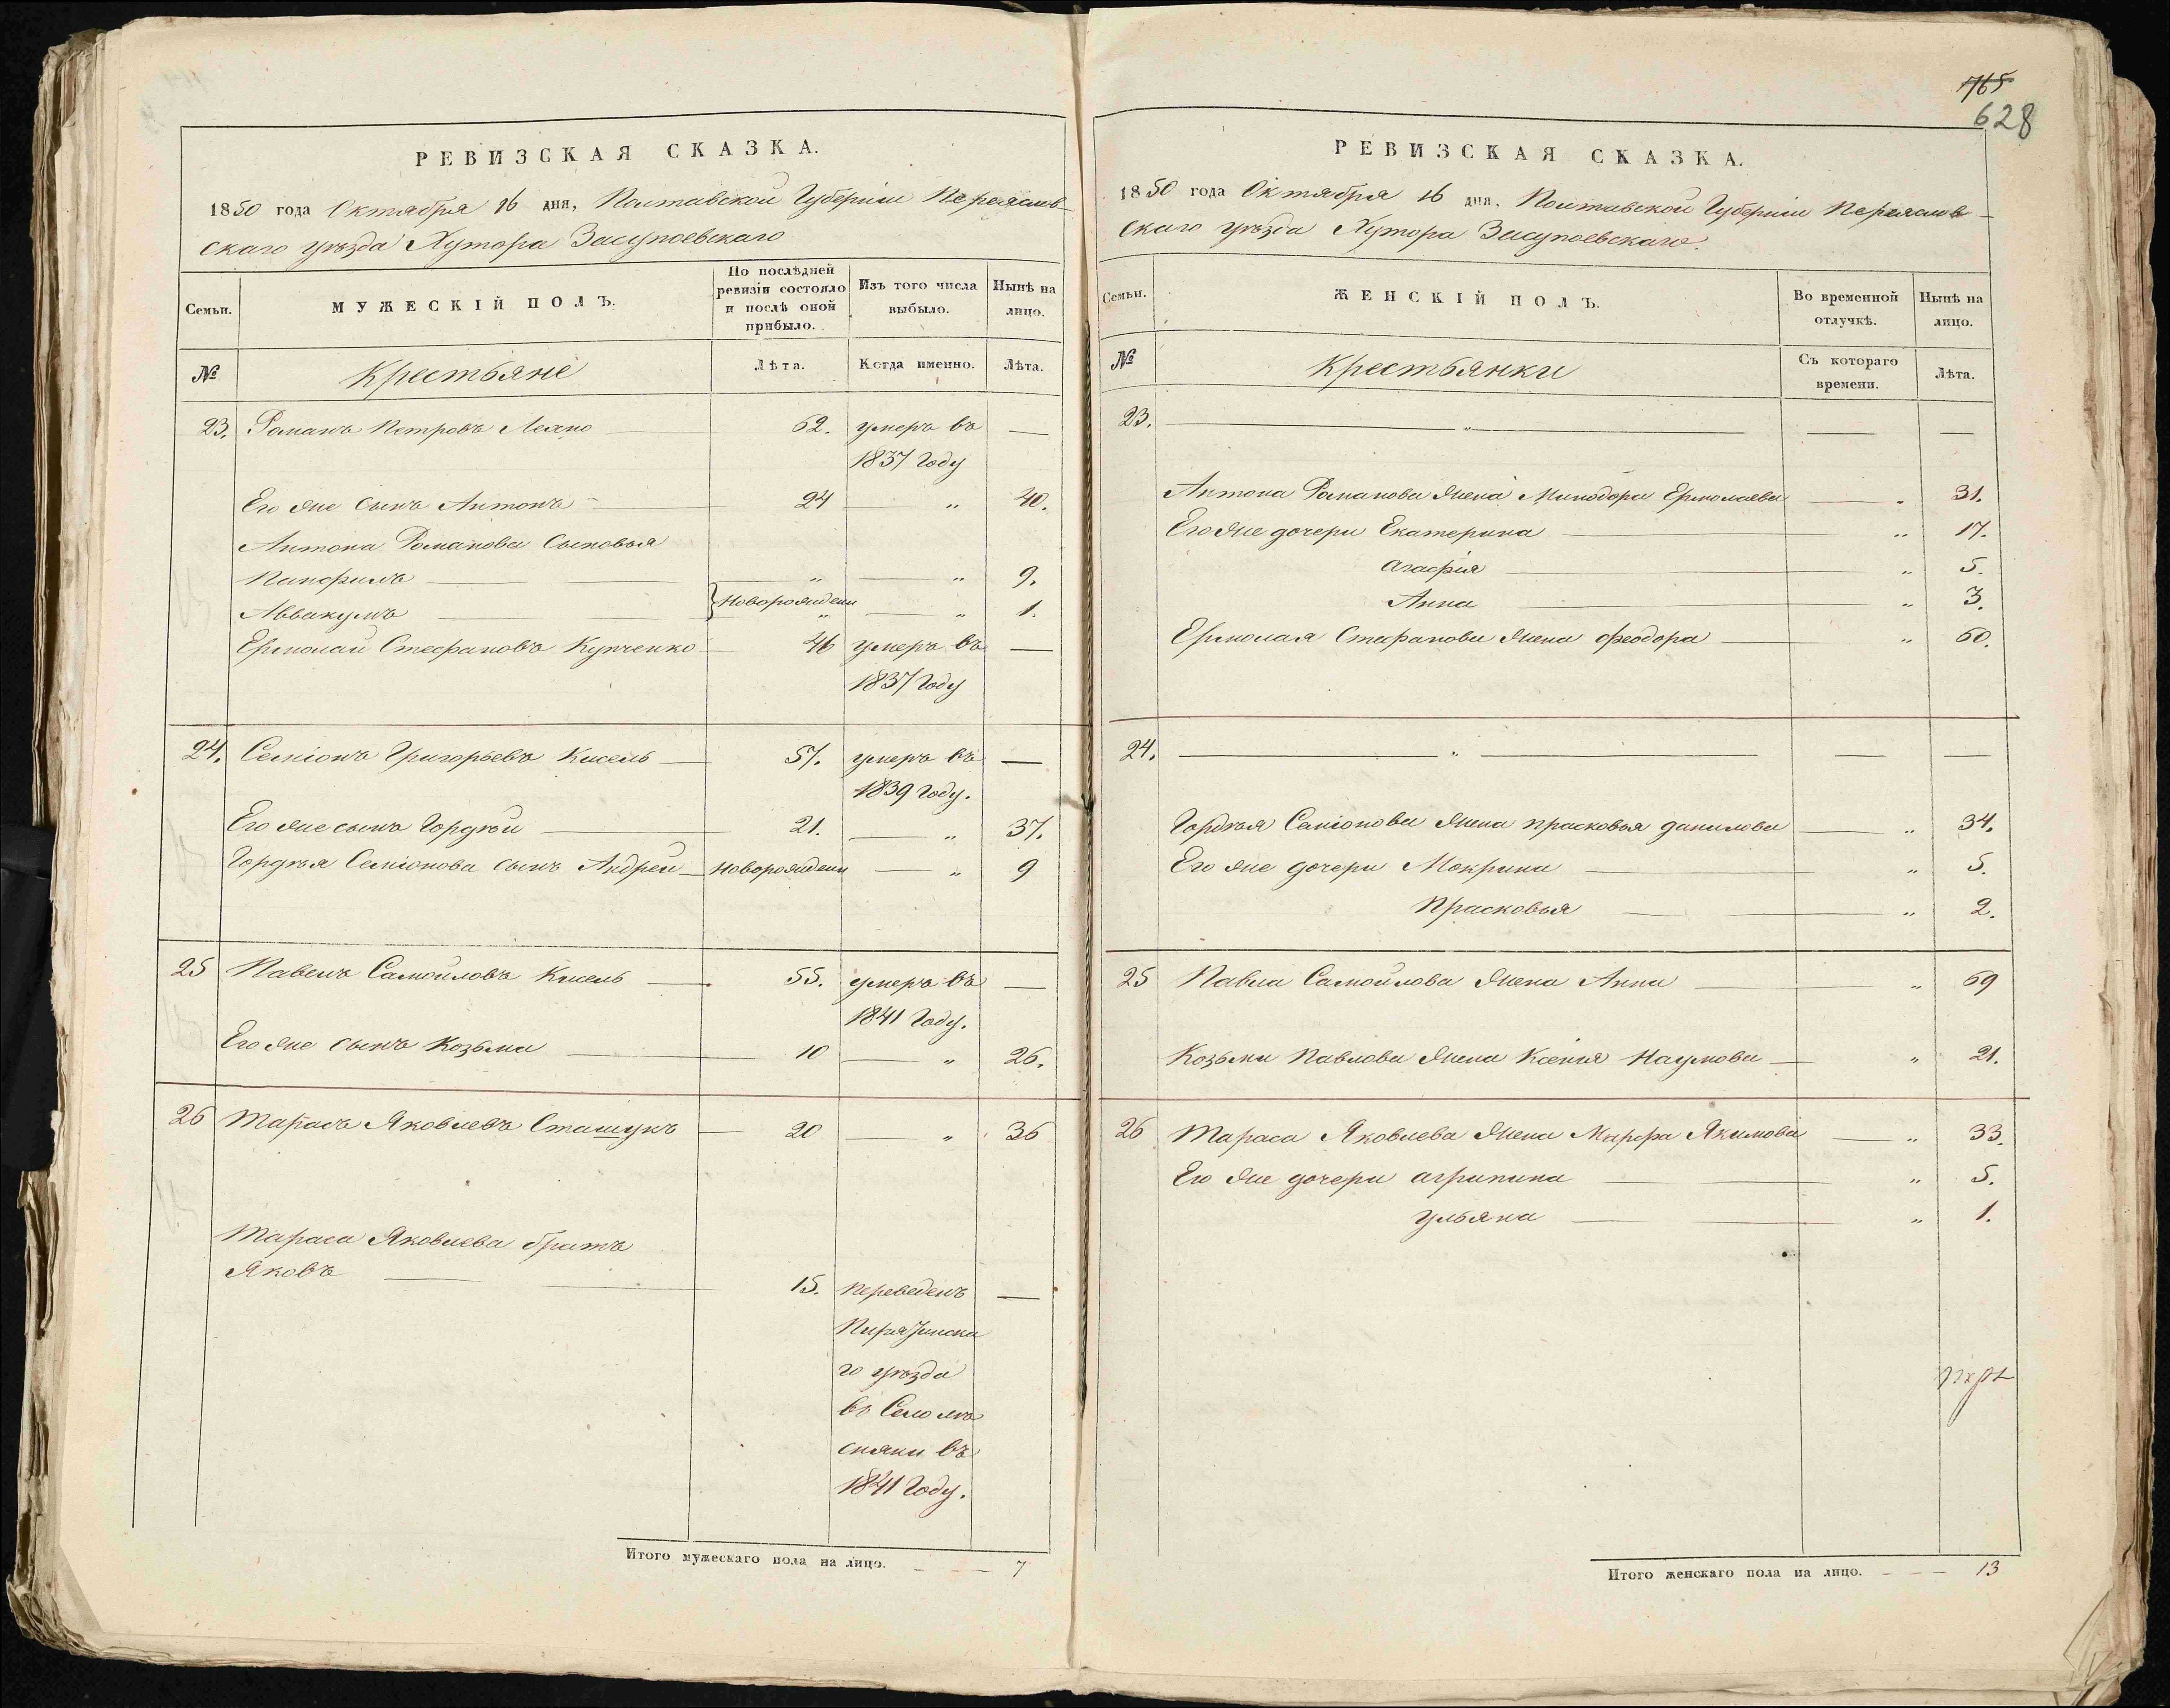 РЕВИЗСКАЯ СКАЗКА.
1850 года Октября 16 дня, Полтавской Губерніи Переяслов-
скаго уѣзда Хутора Засупоевскаго
Семьи. МУЖЕСКІЙ ПОЛЪ. По послѣдней ревизіи состояло и послѣ оной прибыло. Изъ того числа выбыло. Нынѣ на лицо.
№ Крестьяне Лѣта. Когда именно. Лѣта.
23. Романъ Петровъ Лехно 62. умеръ въ —
1837 Году
Его же сынъ Антонъ 24 — „ 40.
Антона Романова Сыновья
Панфилъ „ — „ 9.
Аввакумъ } Новорожден „ — „ 1.
Ермолай Стефановъ Купченко 46 умеръ въ —
1837 Году
24. Семіонъ Григорьевъ Кисель 57. умеръ въ —
1839 Году.
Его же сынъ Гордѣй 21. — „ 37.
Гордѣя Семіонова сынъ Андрей Новорожден — „ 9
25 Павелъ Самойловъ Кисель 55. умеръ въ —
1841 Году.
Его же сынъ Козьма 10 — „ 26.
26 Тарасъ Яковлевъ Сташукъ 20 — „ 36
Тараса Яковлева братъ
Яковъ 15. переведенъ —
Пирятинска
го уѣзда
въ Село
въ
1841 Году.
Итого мужескаго пола на лицо. – – – 7
765
628
РЕВИЗСКАЯ СКАЗКА.
1850 года Октября 16 дня, Полтавской Губерніи Переяслов-
скаго уѣзда Хутора Засупоевскаго.
Семьи. ЖЕНСКІЙ ПОЛЪ. Во временной отлучкѣ. Нынѣ на лицо.
№ Крестьянки Съ котораго времени. Лѣта.
23. — „ — — —
Антона Романова жена Минодора Ермолаева — „ 31.
Его же дочери Екатерина „ 17.
Агафія „ 5.
Анна „ 3.
Ермолая Стефанова жена Феодора „ 60.
24. — „ — — —
Гордѣя Семіонова жена Прасковья Данилова — „ 34.
Его же дочери Мокрина „ 5.
Прасковья „ 2.
25 Павла Самойлова жена Анна „ 69
Козьмы Павлова жена Ксенія Наумова „ 21.
26 Тараса Яковлева жена Марфа Якимова — „ 33.
Его же дочери Агрипина „ 5.
Ульяна „ 1.
Итого женскаго пола на лицо. – – – 13